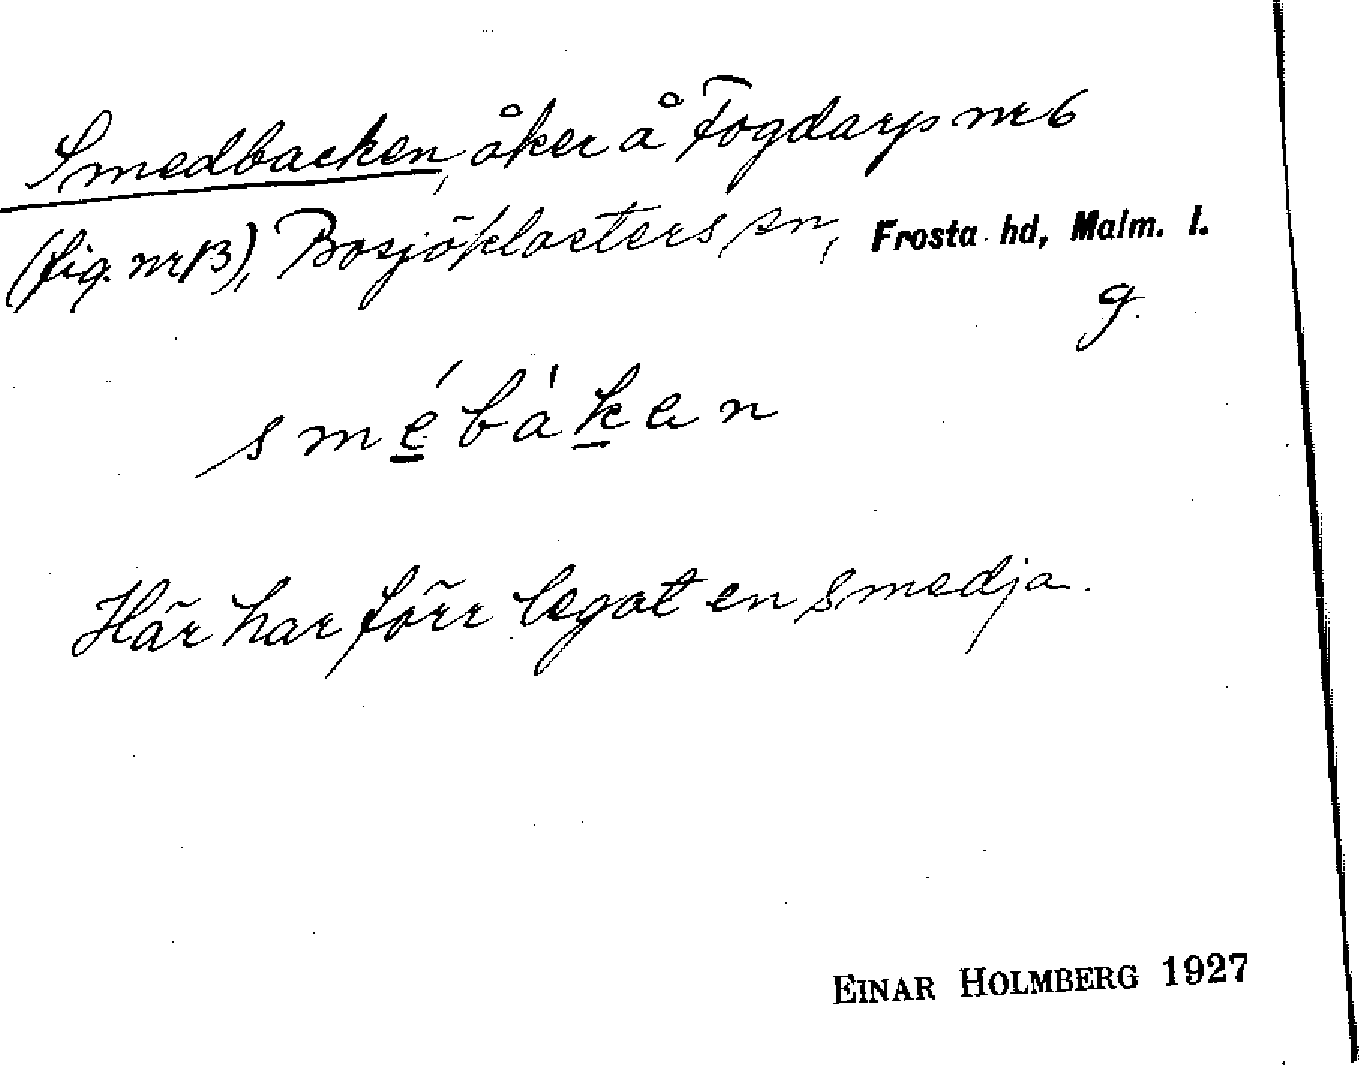 Smedbacken, åker å Fogdarp nr 6
(fig. nr 13), Bosjöklosters sn, Frosta hd, Malm. l.
g.
smébàkan
Här har förr legat en smedja.
EINAR HOLMBERG 1927